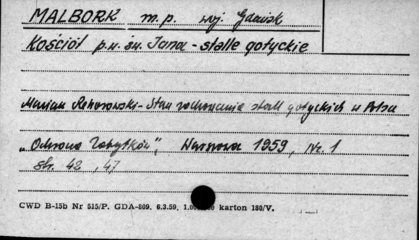 MALBORK m.p. woj. Gdańsk
Kościół p.w. św. Jana - stalle gotyckie
Marian Kornowski - Stan zachowania stall gotyckich w Polsce
"Ochrona Zabytków", Warszawa 1959, Nr. 1
str. 42, 47
CWD B-15b Nr 515/P. GDA-809. 6.3.59. karton 180/V.